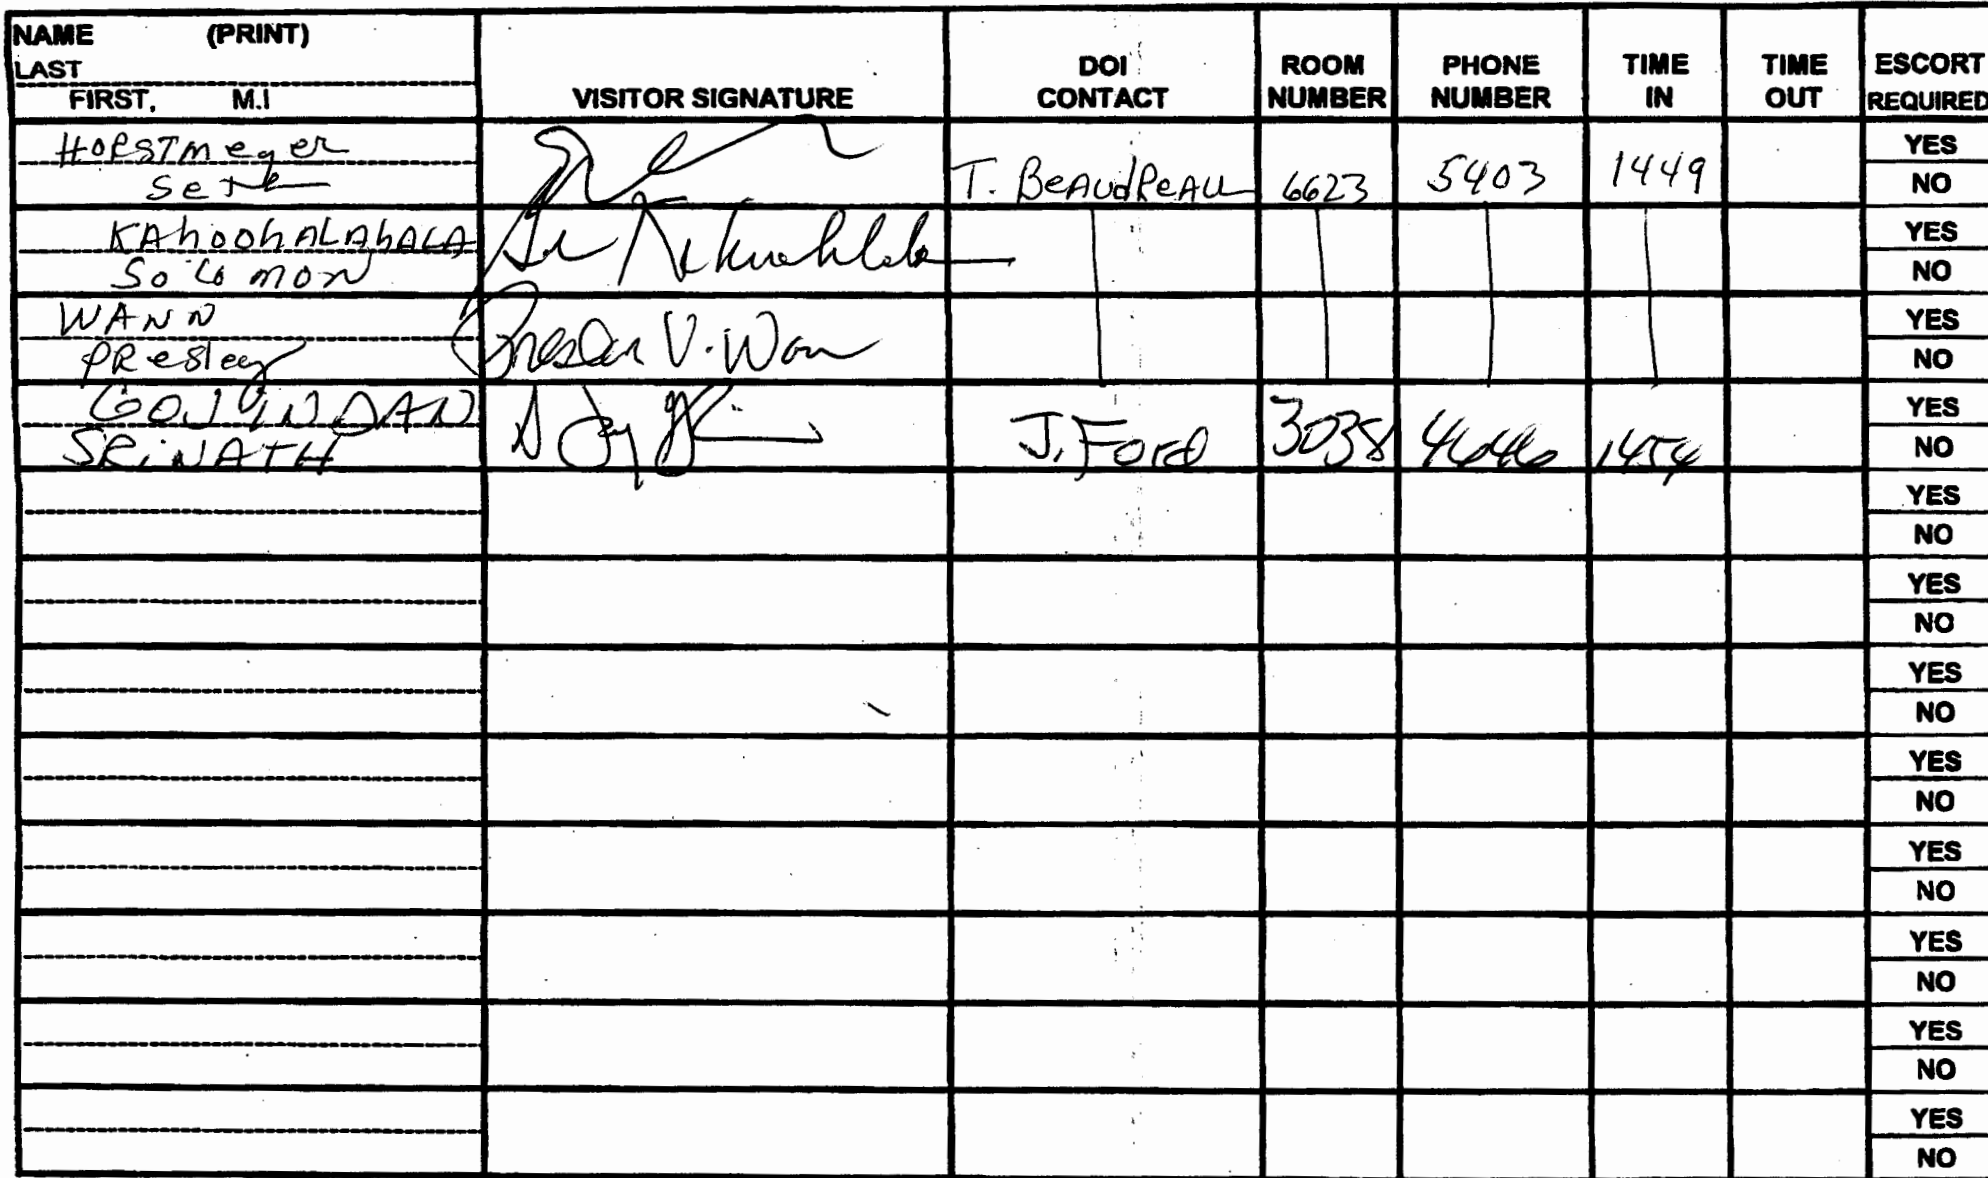 NAME (PRINT)
LAST
FIRST, M.I
VISITOR SIGNATURE
DOI
CONTACT
ROOM
NUMBER
PHONE
NUMBER
TIME
IN
TIME
OUT
ESCORT
REQUIRED
HORSTmeyer
Seth
T. BeAudReAu 6623 5403 1449
YES
NO
KAhoohALAhALA
Solomon
YES
NO
WANN
PResley
Presley V. Wann
YES
NO
GOVINDAN
SRiNATH
J. Ford 3038 4646 1454
YES
NO
YES
NO
YES
NO
YES
NO
YES
NO
YES
NO
YES
NO
YES
NO
YES
NO